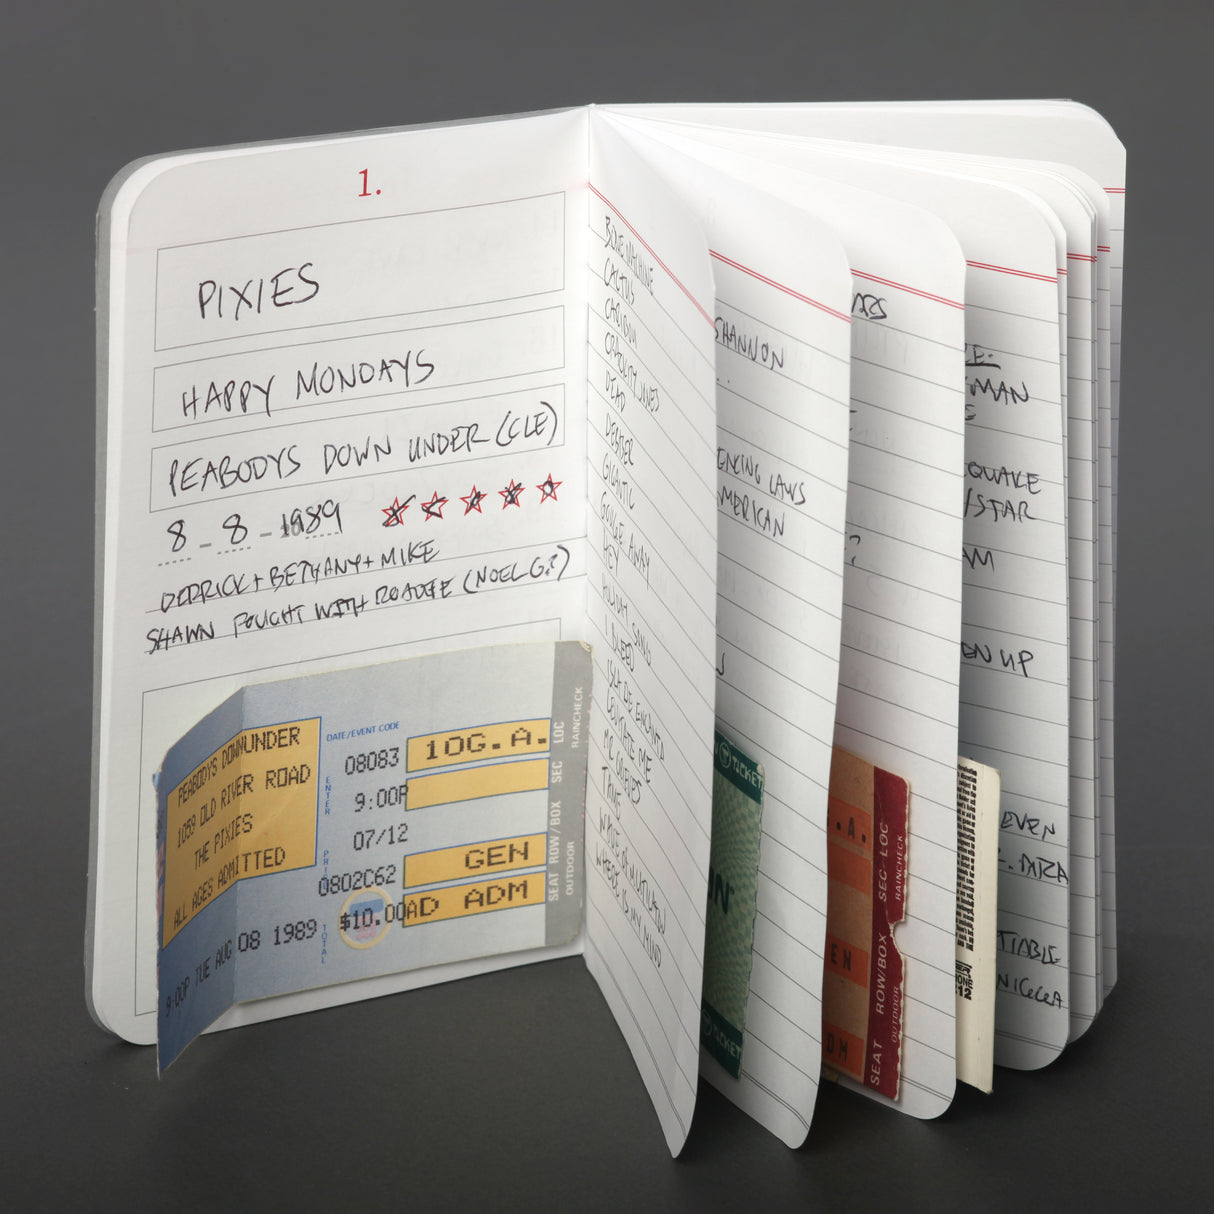 1.
PIXIES
HAPPY MONDAYS
PEABODYS DOWN UNDER (CLE)
8 - 8 - 1989
DERRICK + BETHANY + MIKE
SHAWN FOUGHT WITH ROADIE (NOEL G?)
PEABODYS DOWNUNDER
1059 OLD RIVER ROAD
THE PIXIES
ALL AGES ADMITTED
9:00P TUE AUG 08 1989
DATE/EVENT CODE
08083
ENTER
9:00P
07/12
PRICE
0802C62
$10.00
TOTAL
10G.A.
GEN
AD ADM
SEAT ROW/BOX SEC LOC
OUTDOOR RAINCHECK
BONE MACHINE
CACTUS
CARIBOU
CRACKITY JONES
DEAD
DEBASER
GIGANTIC
GOUGE AWAY
HEY
HOLIDAY SONG
I BLEED
ISLA DE ENCANTA
LEVITATE ME
MR. GRIEVES
TAME
WAVE OF MUTILATION
WHERE IS MY MIND
SHANNON
ENCING LAWS
MERICAN
TICKET
TICKET
ARS
?
.A.
EN
DM
SEAT ROW/BOX SEC LOC
OUTDOOR RAINCHECK
ZE:
MAN
E
QUAKE
/STAR
AM
EN UP
EVEN
TIABLE